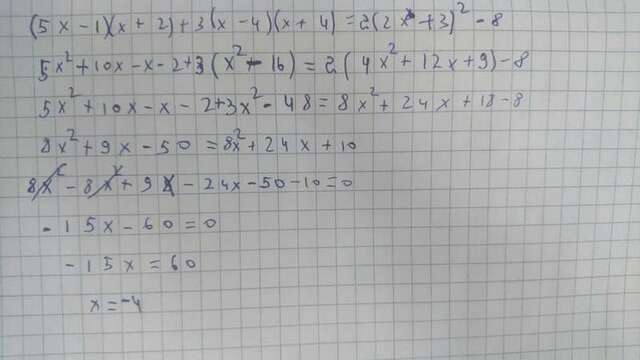 (5x-1)(x+2)+3(x-4)(x+4)=2(2x+3)²-8
5x²+10x-x-2+3(x²-16)=2(4x²+12x+9)-8
5x²+10x-x-2+3x²-48=8x²+24x+18-8
8x²+9x-50=8x²+24x+10
8x²-8x²+9x-24x-50-10=0
-15x-60=0
-15x=60
x=-4